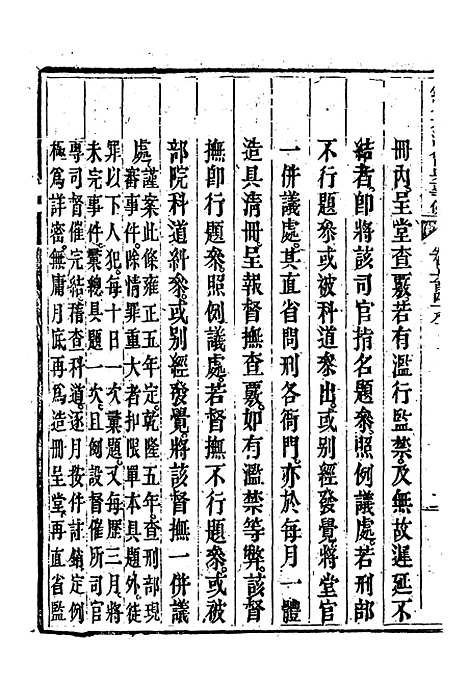 冊內。呈堂查覈。若有濫行監禁。及無故遲延不
結者。卽將該司官指名題參。照例議處。若刑部
不行題參。或被科道參出。或別經發覺。將堂官
一併議處。其直省問刑各衙門。亦於每月一體
造具清冊。呈報督撫查覈。如有濫禁等弊。該督
撫卽行題參。照例議處。若督撫不行題參。或被
部院科道糾參。或別經發覺。將該督撫一併議
處。
謹案此條雍正五年定。乾隆五年查刑部現
審事件。除情罪重大者扣限單本具題外。徒
罪以下人犯。每十日一次彙題。又每歷三月。將
未完事件。彙總具題一次。且飭設督催所司官
專司督催完結。稽查科道。逐月按件計銷。定例
極爲詳密。無庸月底再爲造冊呈堂。再直省監